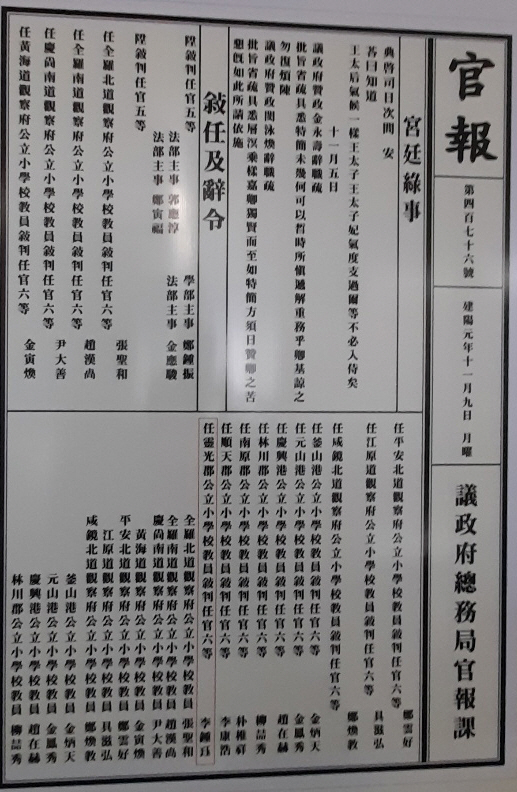 官報
第四百七十六號
建陽元年十一月九日 月曜
議政府總務局官報課
宮廷綠事
典啓司日次問 安
荅曰知道
王太后氣候一樣王太子王太子妃氣度支過爾等不必入侍矣
十一月五日
議政府贊政金永壽辭職疏
批旨省疏具悉特簡未幾何可以暫時所愼遞解重務乎卿基諒之
勿復煩陳
議政府贊政閔泳煥辭職疏
批旨省疏具悉層溟乘槎嘉卿獨賢而至如特簡方須日贊卿之苦
懇旣如此所請依施
敍任及辭令
學部主事 鄭鍾振
陞敍判任官五等
法部主事 郭應淳
法部主事 金應駿
法部主事 鄭寅福
陞敍判任官五等
張聖和
任全羅北道觀察府公立小學校教員敍判任官六等
趙漢卨
任全羅南道觀察府公立小學校教員敍判任官六等
尹大善
任慶尙南道觀察府公立小學校教員敍判任官六等
金寅煥
任黃海道觀察府公立小學校教員敍判任官六等
鄭雲好
任平安北道觀察府公立小學校教員敍判任官六等
具滋弘
任江原道觀察府公立小學校教員敍判任官六等
鄭煥教
任咸鏡北道觀察府公立小學校教員敍判任官六等
金炳天
任釜山港公立小學校教員敍判任官六等
金鳳秀
任元山港公立小學校教員敍判任官六等
趙在赫
任慶興港公立小學校教員敍判任官六等
柳喆秀
任林川郡公立小學校教員敍判任官六等
朴稚祥
任南原郡公立小學校教員敍判任官六等
李康浩
任順天郡公立小學校教員敍判任官六等
李鍾爲
任靈光郡公立小學校教員敍判任官六等
全羅北道觀察府公立小學校教員 張聖和
全羅南道觀察府公立小學校教員 趙漢卨
慶尙南道觀察府公立小學校教員 尹大善
黃海道觀察府公立小學校教員 金寅煥
平安北道觀察府公立小學校教員 鄭雲好
江原道觀察府公立小學校教員 具滋弘
咸鏡北道觀察府公立小學校教員 鄭煥教
釜山港公立小學校教員 金炳天
元山港公立小學校教員 金鳳秀
慶興港公立小學校教員 趙在赫
林川郡公立小學校教員 柳喆秀